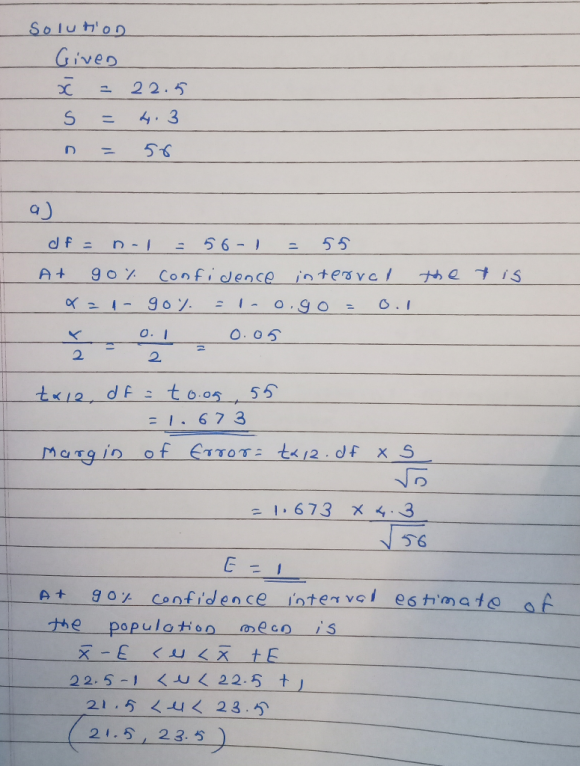 Solution
Given
x̄ = 22.5
S = 4.3
n = 56
a)
df = n-1 = 56-1 = 55
At 90% confidence interval the t is
α = 1- 90% = 1- 0.90 = 0.1
α/2 = 0.1/2 = 0.05
tα/2, df = t0.05, 55
= 1.673
Margin of Error = tα/2.df × S/√n
= 1.673 × 4.3/√56
E = 1
At 90% confidence interval estimate of
the population mean is
x̄ - E < μ < x̄ + E
22.5-1 < μ < 22.5 + 1
21.5 < μ < 23.5
(21.5, 23.5)